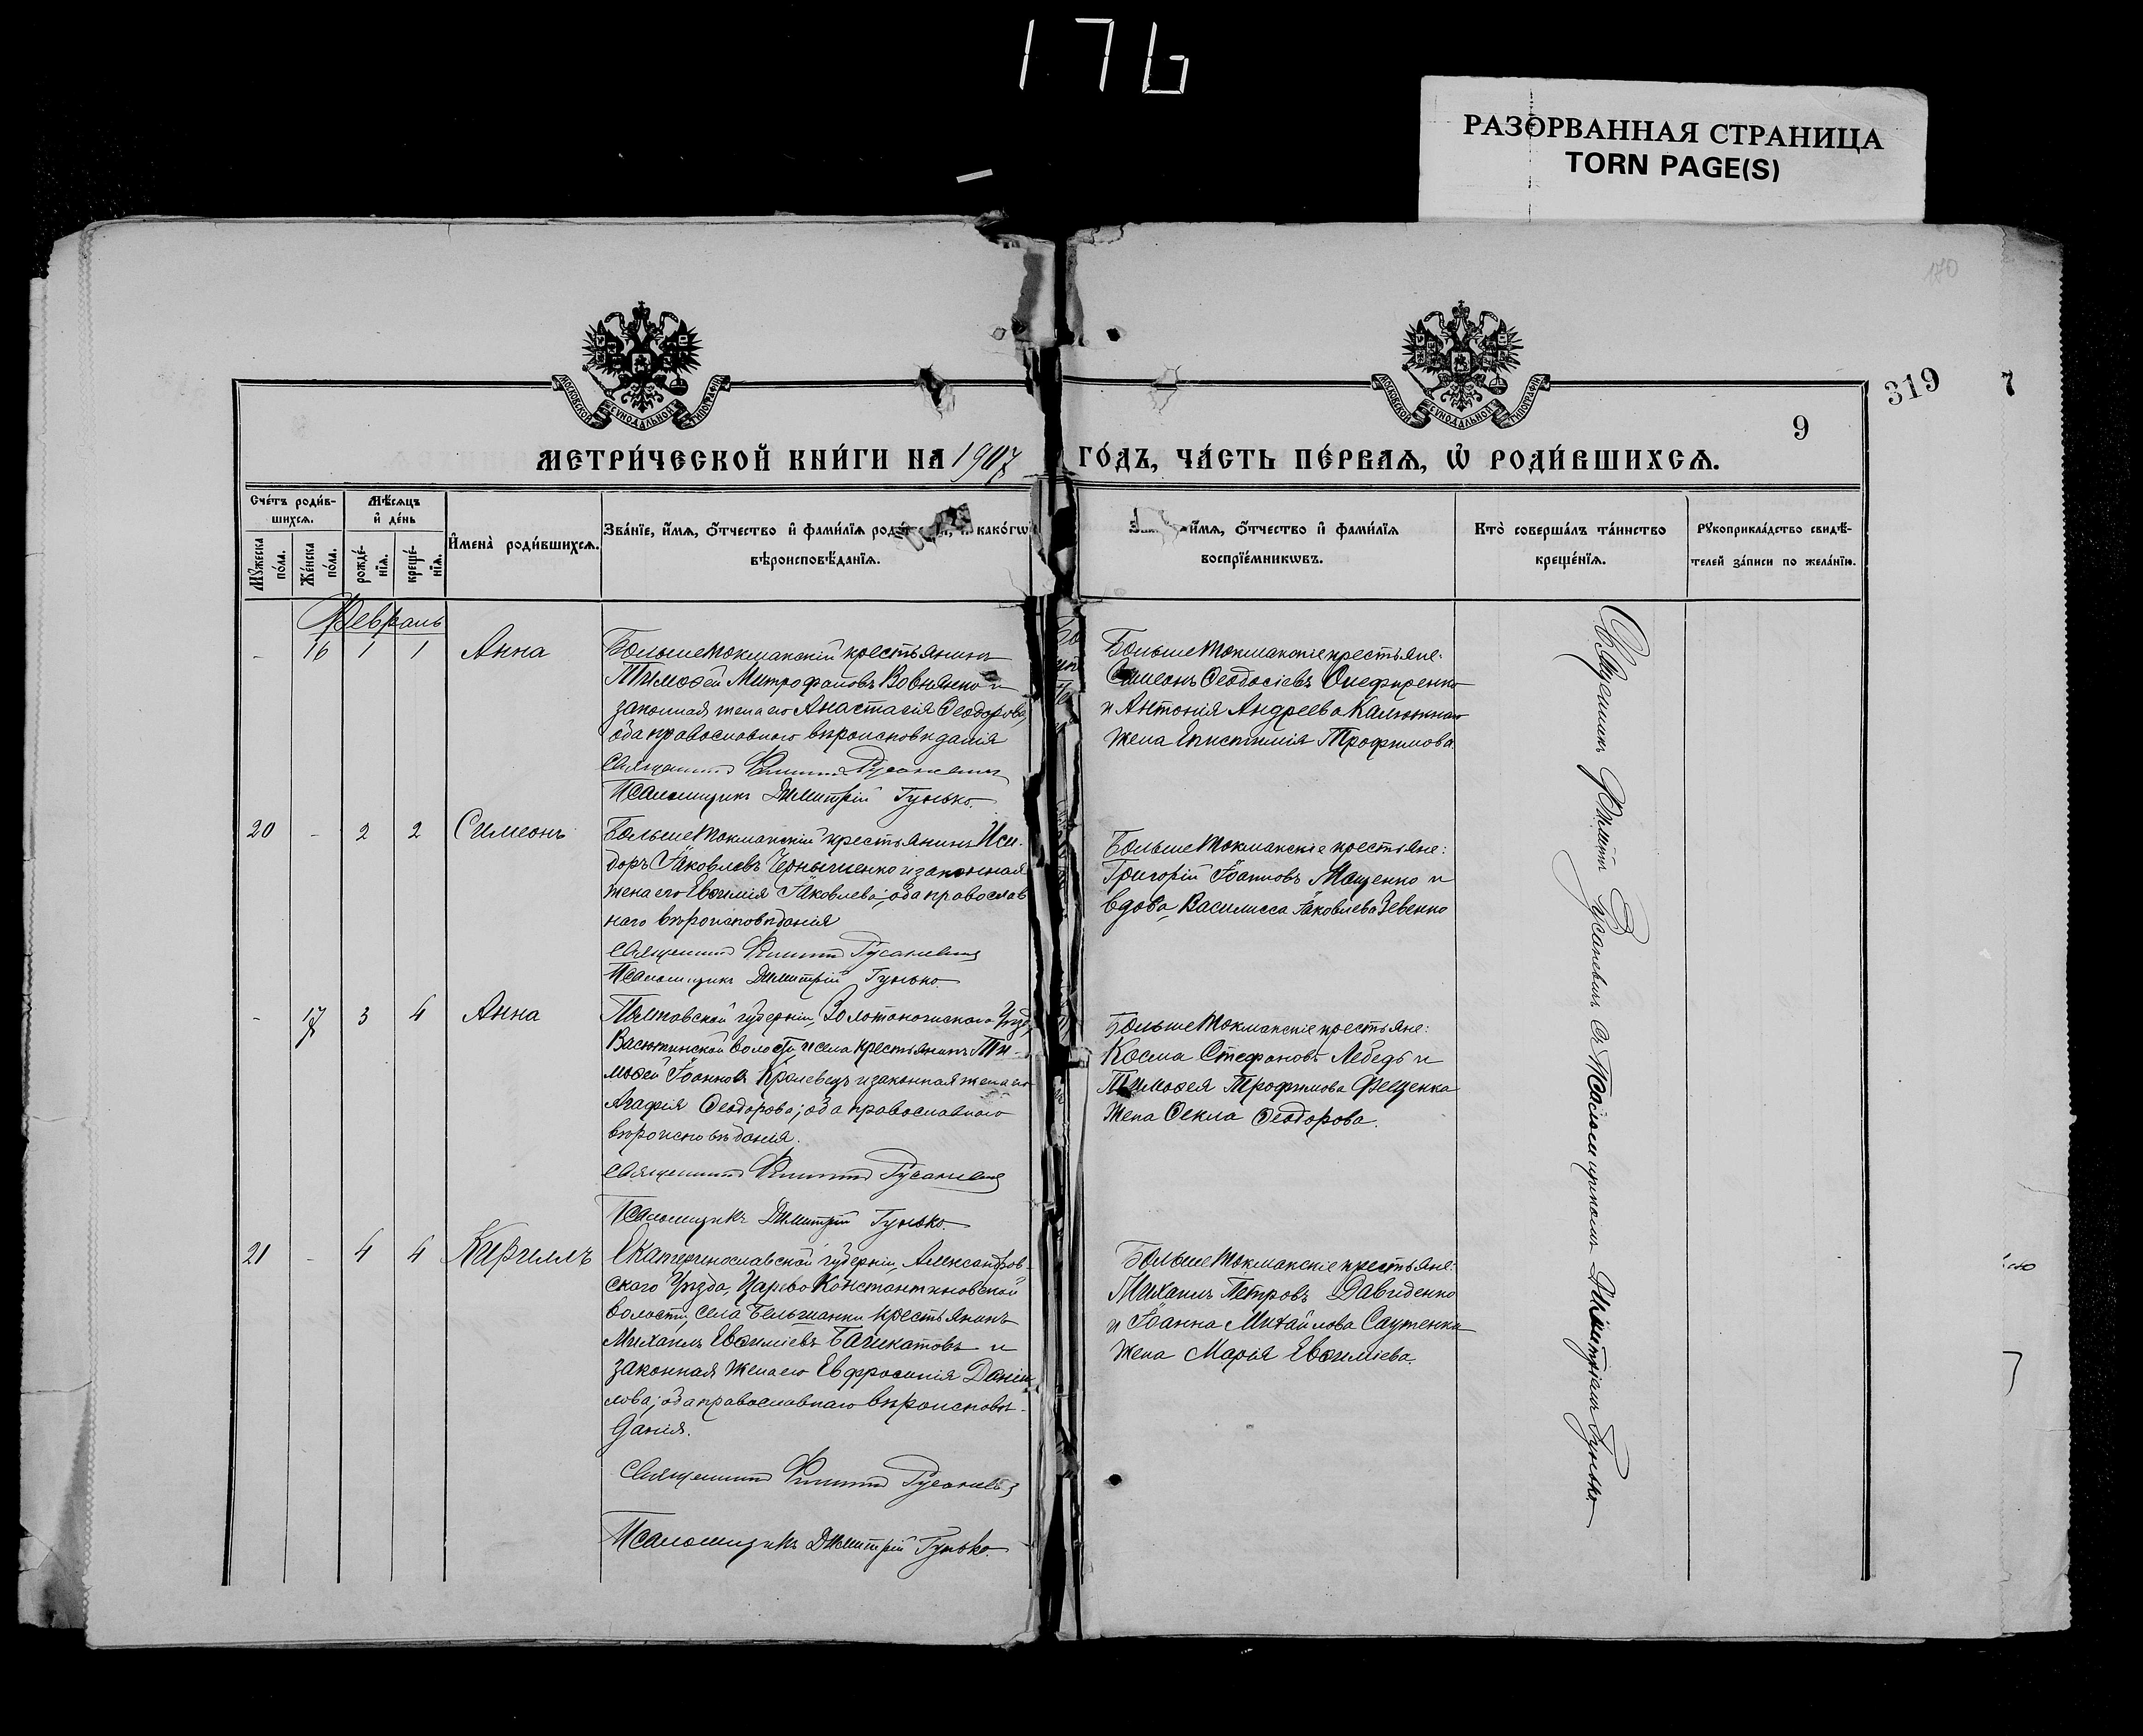 176
РАЗОРВАННАЯ СТРАНИЦА
TORN PAGE(S)
170
МОСКОВСКОЙ СѴНОДАЛЬНОЙ ТИПОГРАФІИ
МОСКОВСКОЙ СѴНОДАЛЬНОЙ ТИПОГРАФІИ
319
7
9
МЕТРИ́ЧЕСКОЙ КНИ́ГИ НА 1907 ГО́ДЪ, ЧА́СТЬ ПЕ́РВАѦ, Ѡ҆ РОДИ́ВШИХСѦ.
Сче́тъ роди́в-
шихсѧ.
Мꙋ́жеска по́ла.
Же́нска по́ла.
Мѣ́сѧцъ
и҆ де́нь
рожде́-нїѧ.
креще́-нїѧ.
И҆мена̀ роди́вшихсѧ.
Зва́нїе, и҆́мѧ, ѻ҆́тчество и҆ фами́лїѧ како́гѡ
вѣроисповѣ́данїѧ.
и҆́мѧ, ѻ҆́тчество и҆ фами́лїѧ
воспрїе́мникѡвъ.
Кто̀ соверша́лъ та́инство
креще́нїѧ.
Рꙋкоприкла́дство свидѣ́-
телей за́писи по жела́нїю.
Февраль
- 16 1 1 Анна
Большетокмакскій крестьянинъ
Тимоѳей Митрофановъ Вовнянко и
законная жена его Анастасія Ѳеодорова,
оба православного вѣроисповѣданія
Священникъ Филиппъ Русаневичъ
Псаломщикъ Димитрій Гунько.
Большетокмакскіе крестьяне:
Симеонъ Ѳеодосіевъ
и Антонія Андреева
жена Епистимія Трофимова
20 - 2 2 Симеонъ
Большетокмакскій крестьянинъ Иси-
доръ Іаковлевъ Чернышенко и законная
жена его Евѳимія Іаковлева; оба православ
наго вѣроисповѣданія
Священникъ Филиппъ Русаневичъ
Псаломщикъ Димитрій Гунько.
Большетокмакскіе крестьяне:
Григорій Іоанновъ Мащенко и
вдова Василисса Іаковлева Зевенко
- 17 3 4 Анна
Полтавской губерніи, Золотоношскаго уѣзда,
Васютинской волости, и села крестьянинъ Ти-
моѳей Іоанновъ Кролевецъ и законная жена его
Агафія Ѳеодорова; оба православнаго
вѣроисповѣданія.
Священникъ Филиппъ Русаневичъ
Псаломщикъ Димитрій Гунько.
Большетокмакскіе крестьяне:
Косма Стефановъ Лебедь и
Тимоѳея Трофимова Фещенка
жена Ѳекла Ѳеодорова.
21 - 4 4 Кириллъ
Екатеринославской губерніи, Александров-
ского уѣзда, Царево Константиновской
волости, села Бельманки крестьянинъ
Михаилъ Евѳиміевъ Башкатовъ и
законная жена его Евфросинія Дани
лова; оба православнаго вѣроисповѣ-
данія.
Священникъ Филиппъ Русаневичъ
Псаломщикъ Димитрій Гунько.
Большетокмакскіе крестьяне:
Михаилъ Петровъ Давиденко
и Іоанна Михайлова Саутенка
жена Марія Евѳиміева.
Священникъ Филиппъ Русаневичъ съ Псаломщикомъ Димитріемъ Гунько.